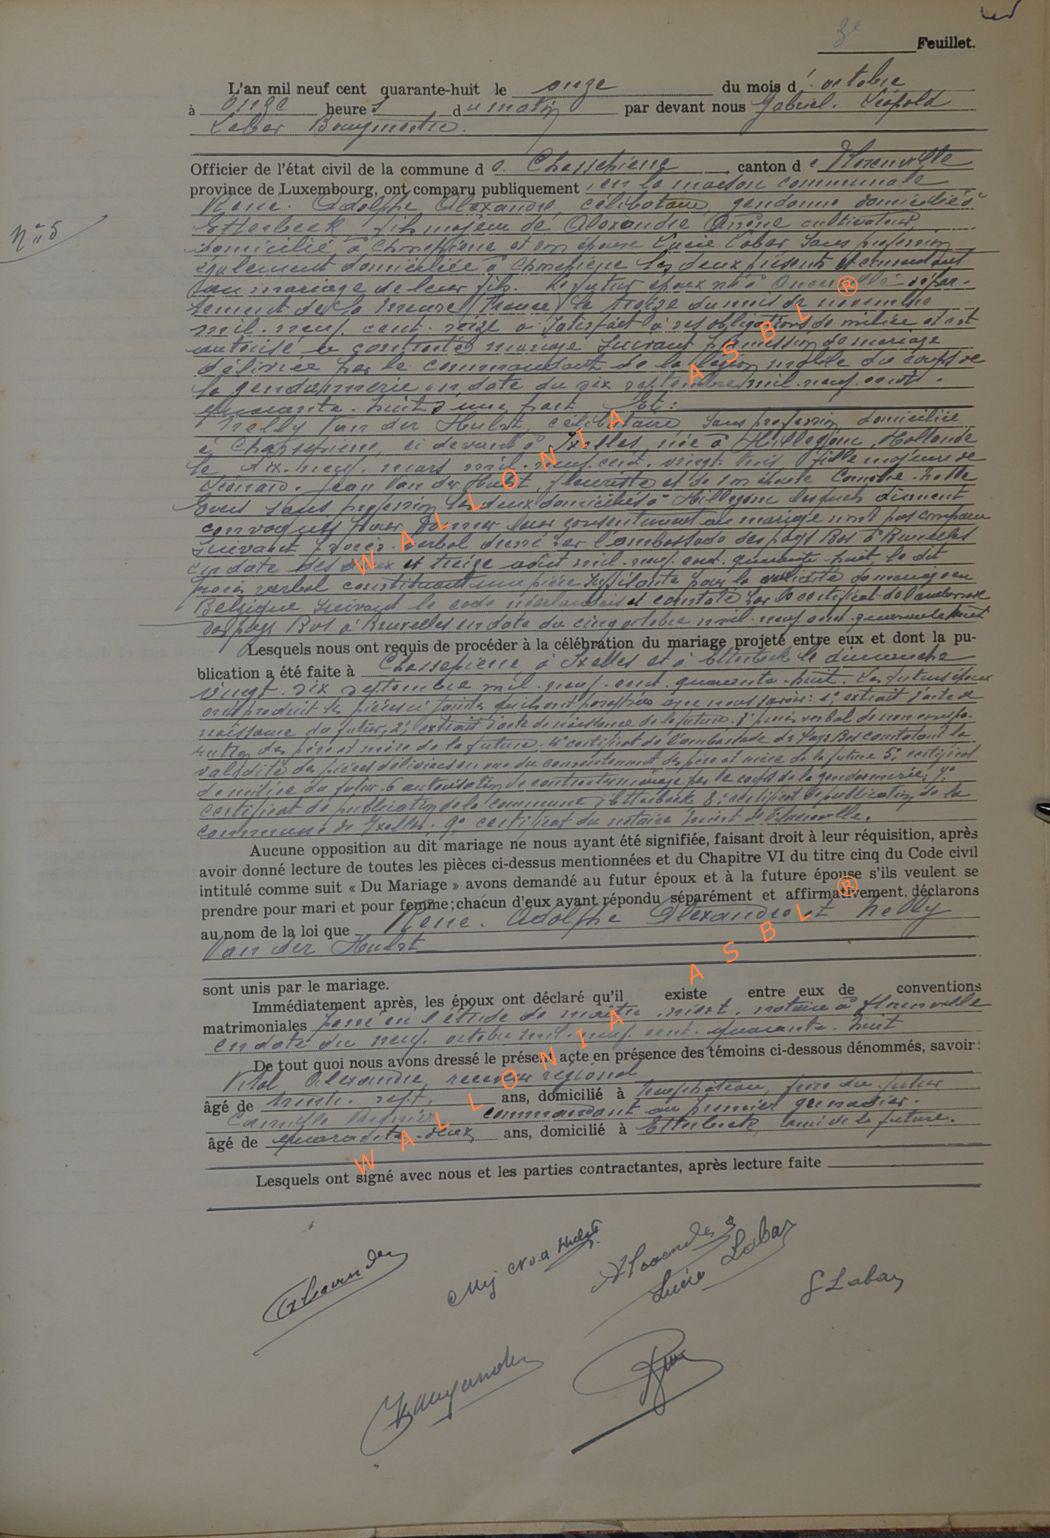 3e Feuillet.
L'an mil neuf cent quarante-huit le onze du mois d'octobre
à onze heures du matin par devant nous Gabriel. Léopold
Labar Bourgmestre.
Officier de l'état civil de la commune de Chassepierre canton de Florenville
province de Luxembourg, ont comparu publiquement en la maison communale
René. Adolphe Alexandre, célibataire, gendarme domicilié à
N° 5
Etterbeek, fils majeur de Alexandre cultivateur,
domicilié à Chassepierre et son épouse Lucie Labar sans profession
également domiciliée à Chassepierre les deux présents et consentant
au mariage de leur fils. Le futur époux né à dépar-
tement de la Meuse (France) le treize du mois de novembre
mil. neuf cent. seize a satisfait à ses obligations de milice et est
autorisé à contracter mariage suivant permission de mariage
délivrée par le commandant de la légion mobile du corps de
la gendarmerie en date du six septembre mil. neuf. cent.
quarante. huit d'une part Et:
Nelly Van der Hulst, célibataire, sans profession, domiciliée
à Chassepierre, ci devant à Ixelles, née à Hillegom, Hollande
le dix-neuf. mars mil. neuf. cent. vingt. fille majeure de
Léonard. Jean Van der Hulst, fleuriste et de
sans profession les deux domiciliés à Hillegom lesquels dûment
convoqués pour donner leur consentement au mariage n'ont pas comparu
suivant procès. verbal dressé par l'ambassade des pays Bas à Bruxelles
en date des deux et treize août mil. neuf. cent. quarante. huit, le dit
procès verbal constituant une pièce suffisante pour la validité du mariage en
Belgique suivant le code néerlandais et constaté par le certificat de l'ambassade
des pays Bas à Bruxelles en date du cinq octobre mil. neuf cent quarante huit
Lesquels nous ont requis de procéder à la célébration du mariage projeté entre eux et dont la pu-
blication a été faite à Chassepierre à Ixelles et à Etterbeek le dimanche
vingt. six septembre mil. neuf. cent. quarante. huit. Les futurs époux
ont produit les pièces ci jointes dûment paraphées avec nous savoir: 1° extrait d'acte de
naissance du futur, 2° extrait d'acte de naissance de la future. 3° procès verbal de non compa-
rution des père et mère de la future. 4° certificat de l'ambassade des Pays Bas constatant la
validité des pièces délivrées en vue du consentement des père et mère de la future 5° certificat
de milice du futur. 6 autorisation de contracter mariage par le corps de la gendarmerie, 7°
certificat de publication de la commune d'Etterbeek 8° certificat de publication de la
commune de Ixelles. 9° certificat du notaire de Florenville.
Aucune opposition au dit mariage ne nous ayant été signifiée, faisant droit à leur réquisition, après
avoir donné lecture de toutes les pièces ci-dessus mentionnées et du Chapitre VI du titre cinq du Code civil
intitulé comme suit « Du Mariage » avons demandé au futur époux et à la future épouse s'ils veulent se
prendre pour mari et pour femme; chacun d'eux ayant répondu séparément et affirmativement, déclarons
au nom de la loi que René. Adolphe Alexandre et Nelly
Van der Hulst
sont unis par le mariage.
Immédiatement après, les époux ont déclaré qu'il existe entre eux de conventions
matrimoniales passé en l'étude de maître notaire à Florenville
en date du neuf octobre mil. neuf. cent. quarante. huit
De tout quoi nous avons dressé le présent acte en présence des témoins ci-dessous dénommés, savoir:
Vital Alexandre, receveur régional
âgé de trente. sept. ans, domicilié à Neufchateau, frère du futur
Camille commandant au premier grenadier.
âgé de quarante. deux ans, domicilié à Etterbeek, ami de la future.
Lesquels ont signé avec nous et les parties contractantes, après lecture faite
Alexandre
Alexandre
Lucie Labar
G Labar
WALLONIA ASBL ®
WALLONIA ASBL ®